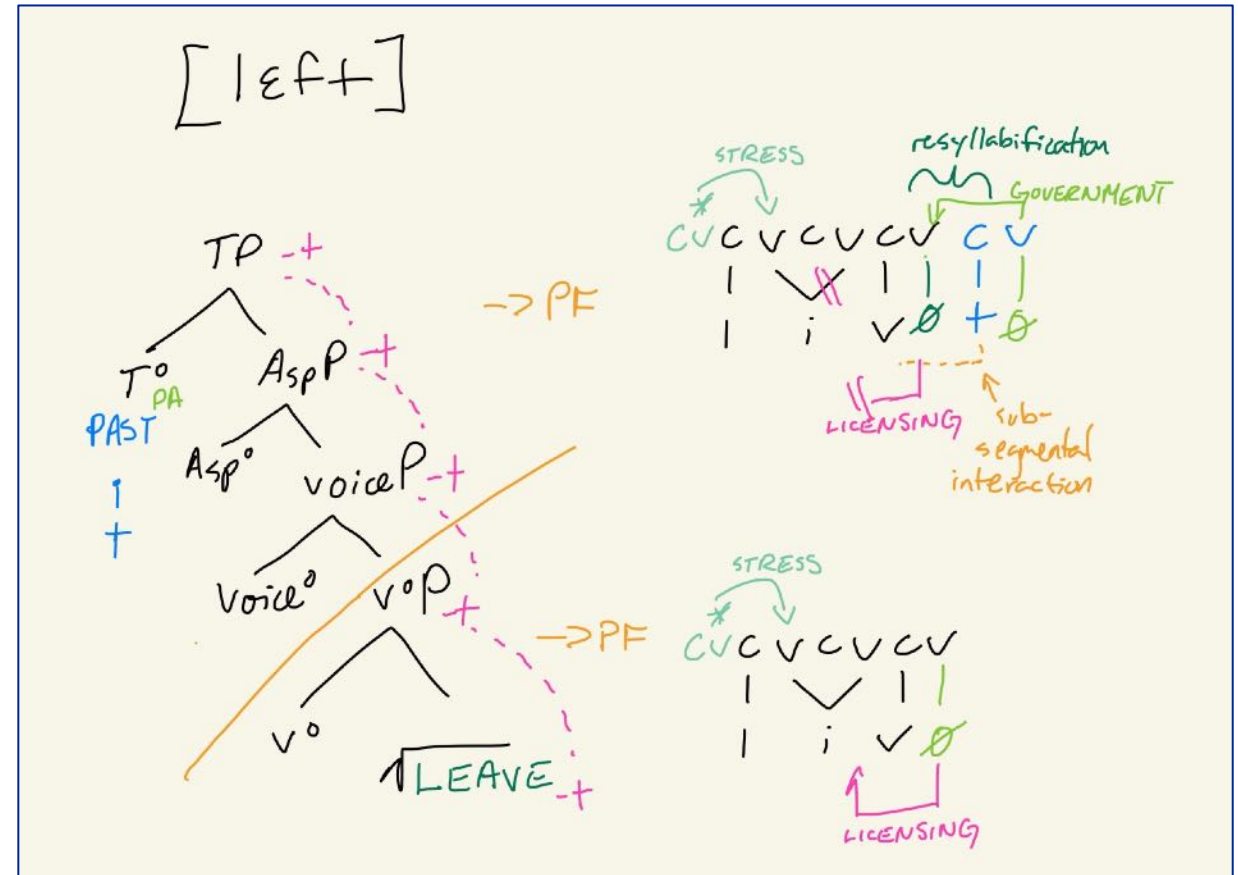 [lɛft]
TP -t
T° PA
PAST
t
AspP -t
Asp°
voiceP -t
Voice°
v°P -t
v°
√LEAVE -t
-> PF
STRESS
*
resyllabification
GOVERNMENT
C V C V C V C V C V
l i v ∅ t ∅
LICENSING
sub-
segmental
interaction
-> PF
STRESS
*
C V C V C V C V
l i v ∅
LICENSING